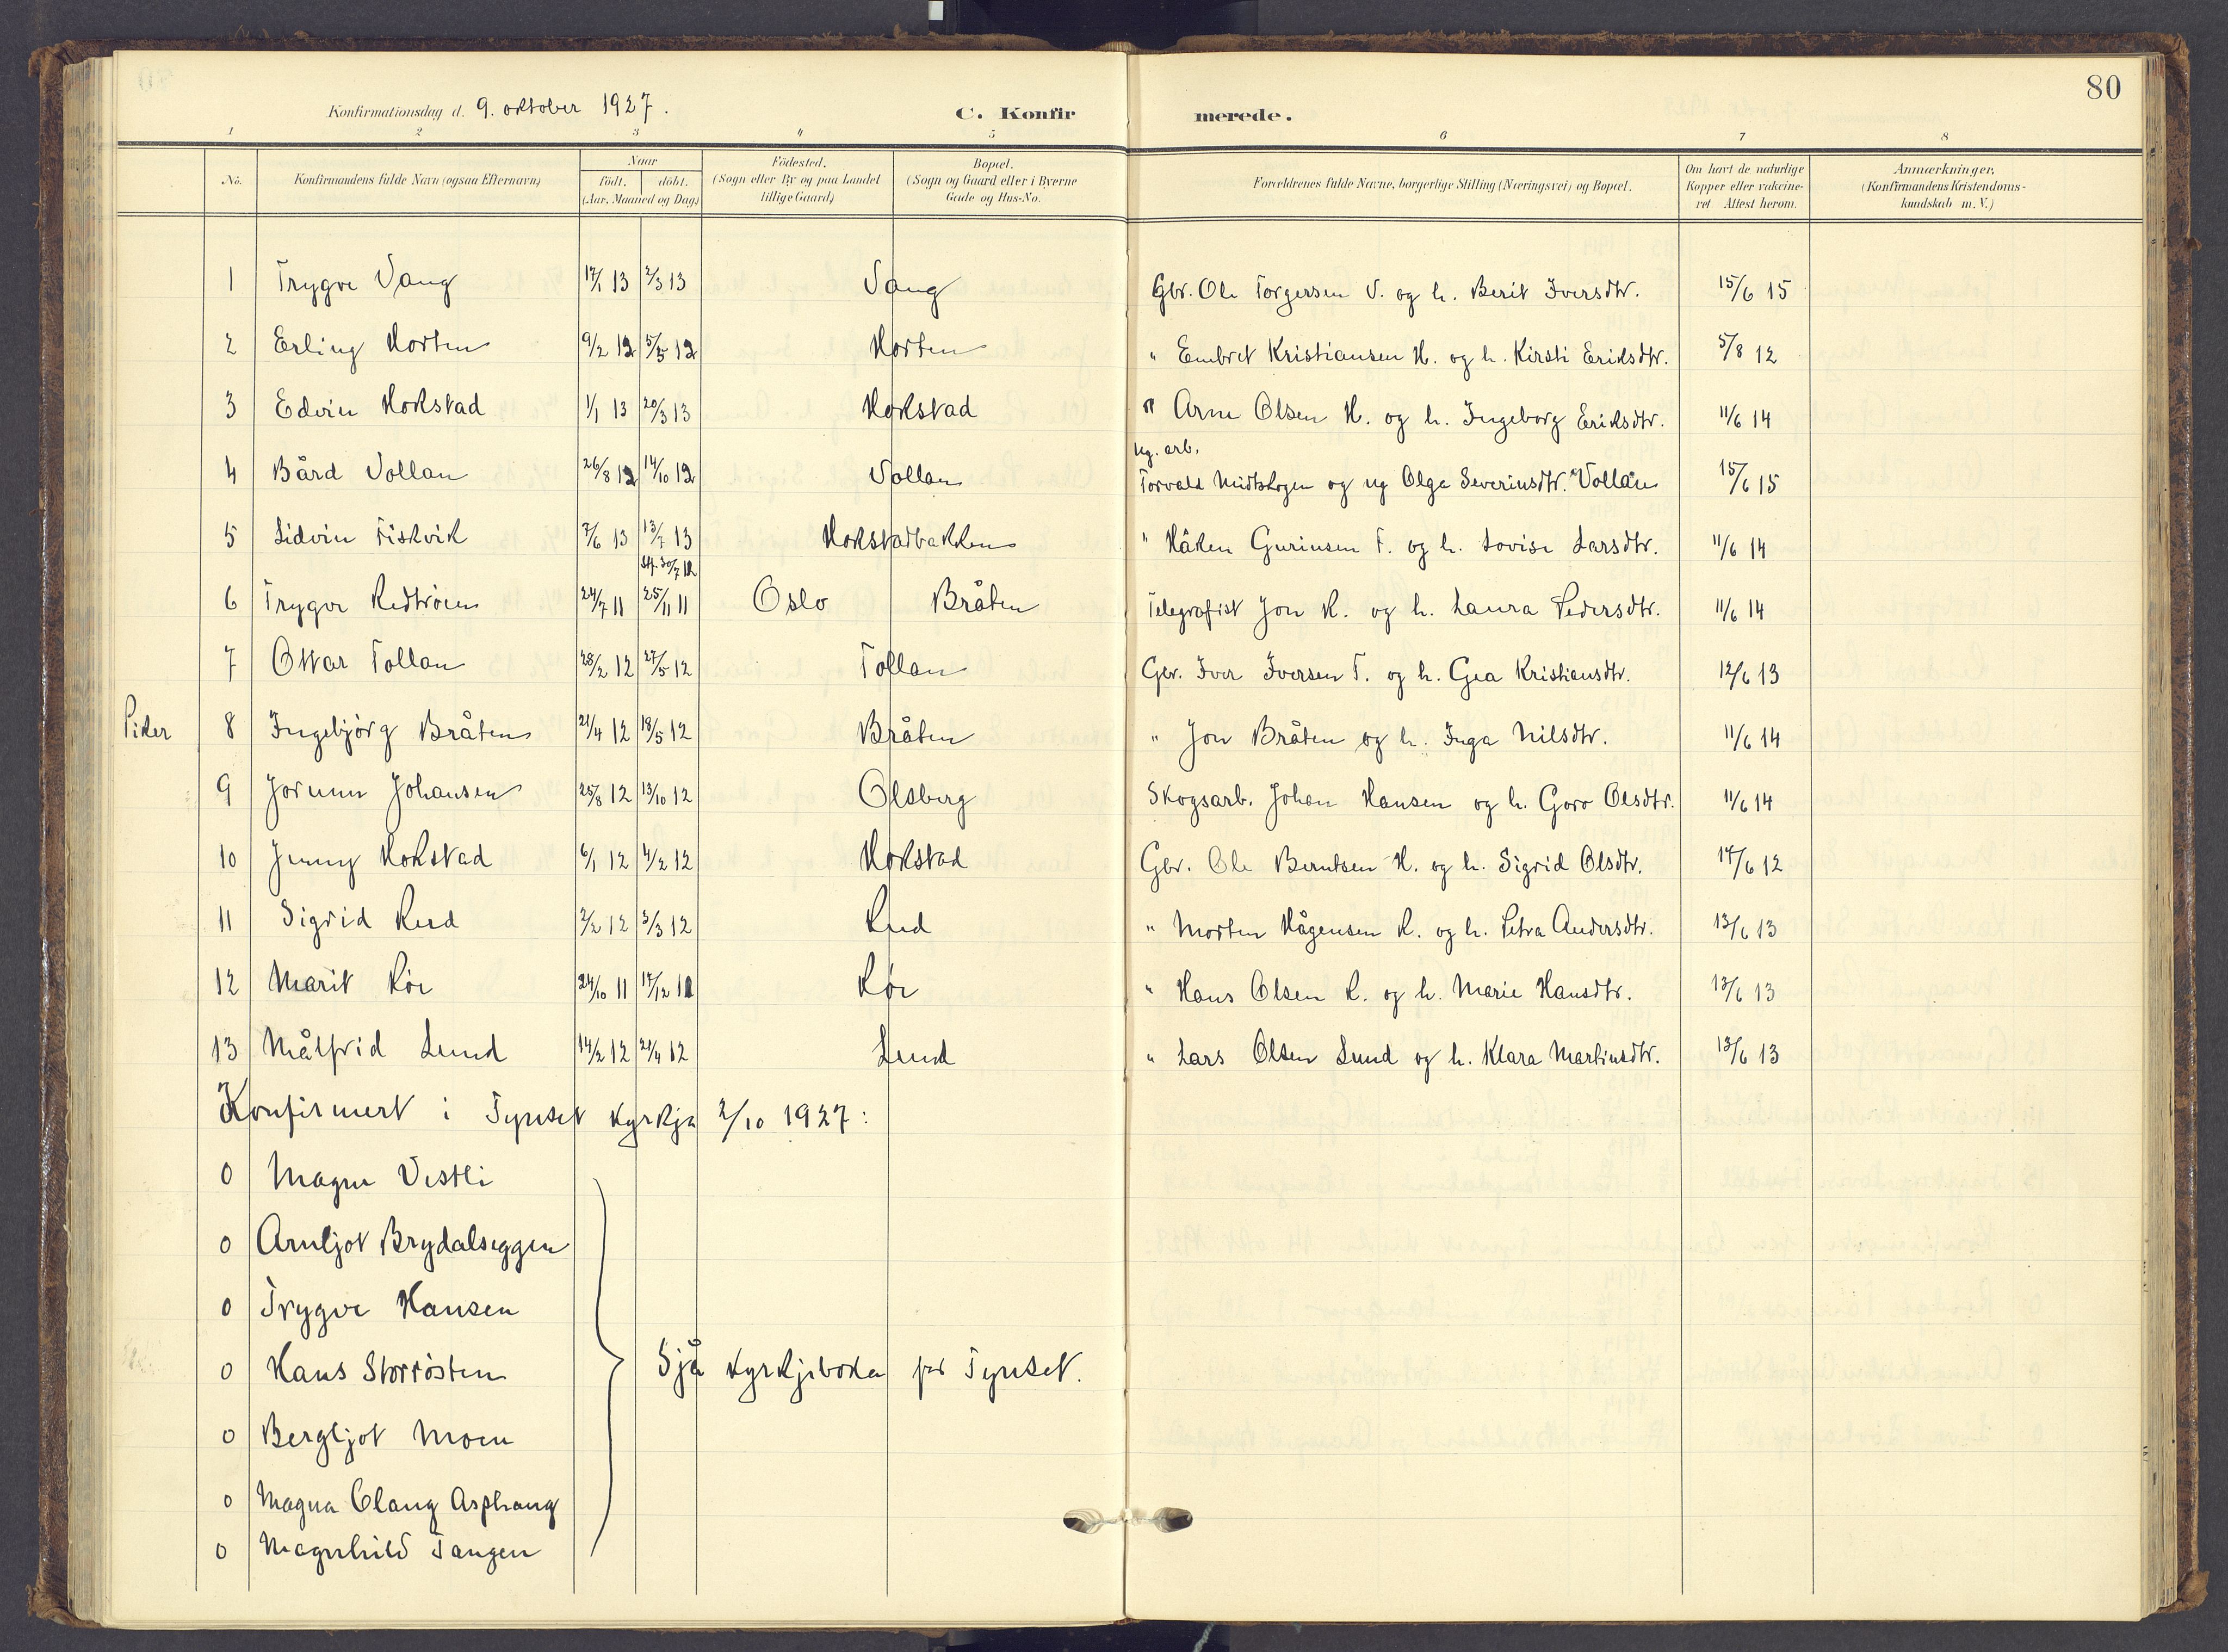 80
Konfirmationsdag d. 9. oktober 1927.
C. Konfirmerede.
1 2 3 4 5 6 7 8
No. Konfirmandens fulde Navn (ogsaa Efternavn) Naar født. døbt. (Aar, Maaned og Dag) Födested. (Sogn eller By og paa Landet tillige Gaard) Bopæl. (Sogn og Gaard eller i Byerne Gade og Hus-No. Forældrenes fulde Navne, borgerlige Stilling (Næringsvei) og Bopæl. Om havt de naturlige Kopper eller vakcineret Attest herom. Anmærkninger. (Konfirmandens Kristendomskundskab m. V.)
1 Trygve Vang 17/1 13 2/3 13 Vang Gbr. Ole Torgersen V. og h. Berit Iversdtr. 15/6 15
2 Erling Horten 9/2 12 5/5 12 Horten " Embret Kristiansen H. og h. Kirsti Eriksdtr. 5/8 12
3 Edvin Hokstad 1/1 13 20/3 13 Hokstad " Arne Olsen H. og h. Ingeborg Eriksdtr. 11/6 14
4 Bård Vollan 26/8 12 14/10 12 Vollan ug. arb. Torvald Midtskogen og ug Olga Severinsdtr. Vollan 15/6 15
5 Lidvin Fiskvik 7/6 13 13/7 13 Hokstadbakken " Håken Gurinsen F. og h. Lovise Larsdtr. 11/6 14
Stf. 30/7 12
6 Trygve Rødtrøen 24/7 11 25/11 11 Oslo Bråten Telegrafist Jon R. og h. Laura Pedersdtr. 11/6 14
7 Ottar Tollan 28/2 12 27/5 12 Tollan Gbr. Iver Iversen T. og h. Gea Kristiansdtr. 12/6 13
Piker 8 Ingebjörg Bråten 21/4 12 18/5 12 Bråten " Jon Bråten og h. Inga Nilsdtr. 11/6 14
9 Jorunn Johansen 25/8 12 13/10 12 Olsberg Skogsarb. Johan Hansen og h. Goro Olsdtr. 11/6 14
10 Jenny Hokstad 6/1 12 4/2 12 Hokstad Gbr. Ole Berntsen H. og h. Sigrid Olsdtr. 17/6 12
11 Sigrid Rud 2/2 12 3/3 12 Rud " Morten Hågensen R. og h. Petra Andersdtr. 13/6 13
12 Marit Röe 24/10 11 17/12 11 Röe " Hans Olsen R. og h. Marie Hansdtr. 13/6 13
13 Målfrid Lund 14/2 12 21/4 12 Lund " Lars Olsen Lund og h. Klara Martinsdtr. 13/6 13
Konfirmert i Tynset kyrkja 2/10 1927:
0 Magne Vestli
0 Arnljot Brydalseggen
0 Trygve Hansen
0 Hans Storrösten Sjå kyrkjeboka for Tynset.
0 Bergljot Moen
0 Magna Olaug Asphaug
0 Magnhild Tangen